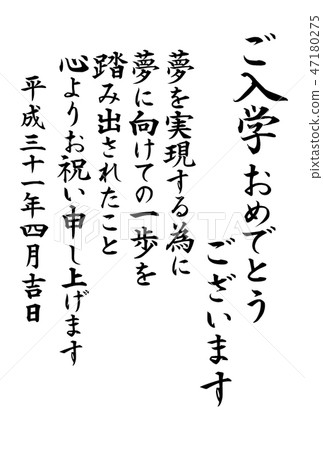 ご入学おめでとう
ございます
夢を実現する為に
夢に向けての一歩を
踏み出されたこと
心よりお祝い申し上げます
平成三十一年四月吉日
PIXTA
47180275